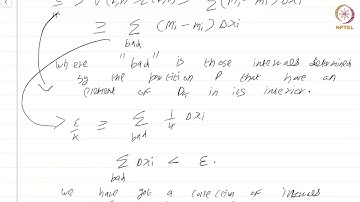 NPTEL
≥ Σ (Mi - mi) Δxi
bad
where "bad" is those intervals determined
by the partition P that have an
element of D in its interior.
ε/k ≥ Σ 1/k Δxi
bad
Σ Δxi < ε.
bad
we have got a collection of intervals